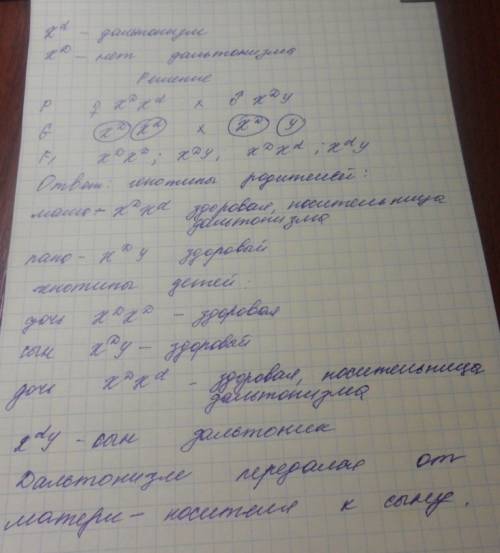 X^d - дальтонизм
X^D - нет дальтонизма
Решение
P ♀ X^D X^d x ♂ X^D Y
G X^D X^d x X^D Y
F₁ X^D X^D; X^D Y, X^D X^d; X^d Y
Ответ: генотипы родителей:
мама - X^D X^d здоровая, носительница
дальтонизма
папа - X^D Y здоровый
генотипы детей:
дочь X^D X^D - здоровая
сын X^D Y - здоровый
дочь X^D X^d - здоровая, носительница
дальтонизма
X^d Y - сын дальтоник
Дальтонизм передался от
матери - носителя к сыну.